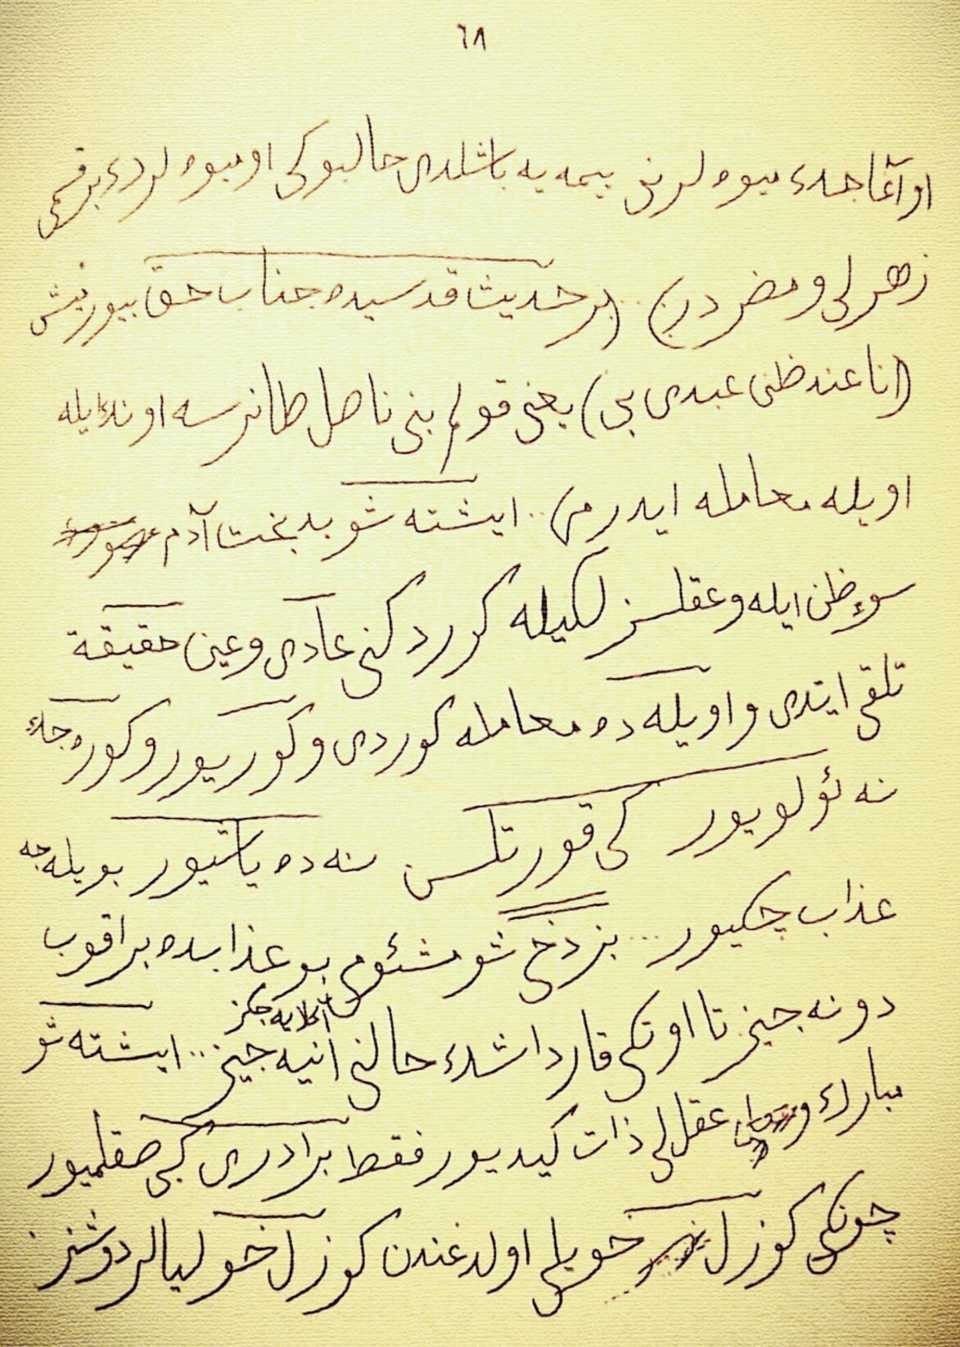 ٦٨
او آغاجدن میوه لرنی ییمه یه باشلدی حالبوکی او میوه لردن برقسمی
زهرلی و مضردر) .. (بر حدیث قدسیده جناب حق بیوریش
(انا عند ظنی عبدی بی) یعنی قولم بنی ناصل طانرسه اونڭله
اویله معامله ایدرم) .. ایشته شو بدبخت آدم
سوء ظن ایله و عقلسزلکیله کوردکنی عادی و عین حقیقة
تلقی ایتدی و اویله ده معامله کوردی و کوریور و کوره جك
نه ئولویور کی قورتلسن نه ده یاشیور بویلەجه
عذاب چکیور ... بزدخی شو مشئومی بو عذابده براقوب
دونه جیز تا اوتکی قارداشڭ حالنی آڭلایه جغز .. ایشته شو
مبارك و عقللی ذات کیدیور فقط برادری کبی صقلمیور
چونکی کوزل خویلی اولدغندن کوزل خولیالر دوشنر